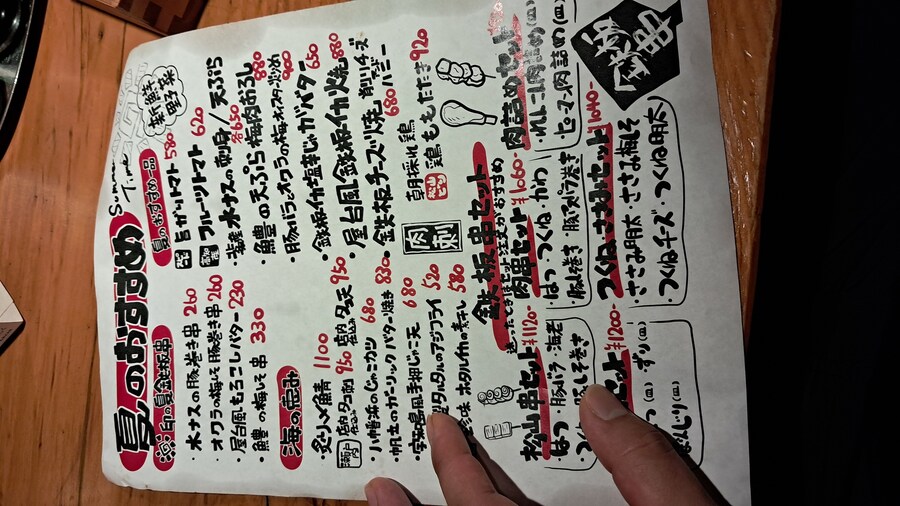 夏のおすすめ
Summer Time
印の夏鉄板串
・水ナスの豚巻き串 260
・オクラの梅しそ豚巻き串 260
・屋台風もろこしバター 230
・鱧の梅しそ串 330
海の恵み
・炙り〆鯖 1100
瀬戸内 店内仕込み タコ刺 950 店内仕込み タコ天 950
・八幡浜のじゃこカツ 380
・帆立のガーリックバター焼き 830
・宇和島風手押じゃこ天 680
タルタルのアジフライ 520
珍味 ホタルイカの素干し 580
夏のおすすめ一品
新鮮野菜
旨がりトマト 580
高知産 フルーツトマト 620
水ナスの刺身/天ぷら 各650
・鱧の天ぷら 梅肉おろし 880
・豚バラとオクラの梅オイスター炒め 900
・鉄板イカ塩辛じゃがバター 650
・屋台風鉄板イカ焼 880
・鉄板チーズ焼 削りチーズアンドハニー 680
肉刺
朝採れ鶏
松山 鶏ももたたき 920
鉄板串セット
迷ったときはセット注文がおすすめ
松山串セット ¥1120-
・はつ・豚バラ・海老
・つくね 豚しそ巻き
肉串セット ¥1060-
・はつ・つくね・かわ
・豚しそ巻き・豚アスパラ巻き
肉詰めセット
・れんこん肉詰め(皿)
・ピーマン肉詰め(皿)
セット ¥1200-
つ(皿)・ずり(皿)
ぼんじり(皿)
つくねささみセット ¥1040-
・ささみ明太・ささみ梅しそ
・つくねチーズ・つくね明太
鉄板串